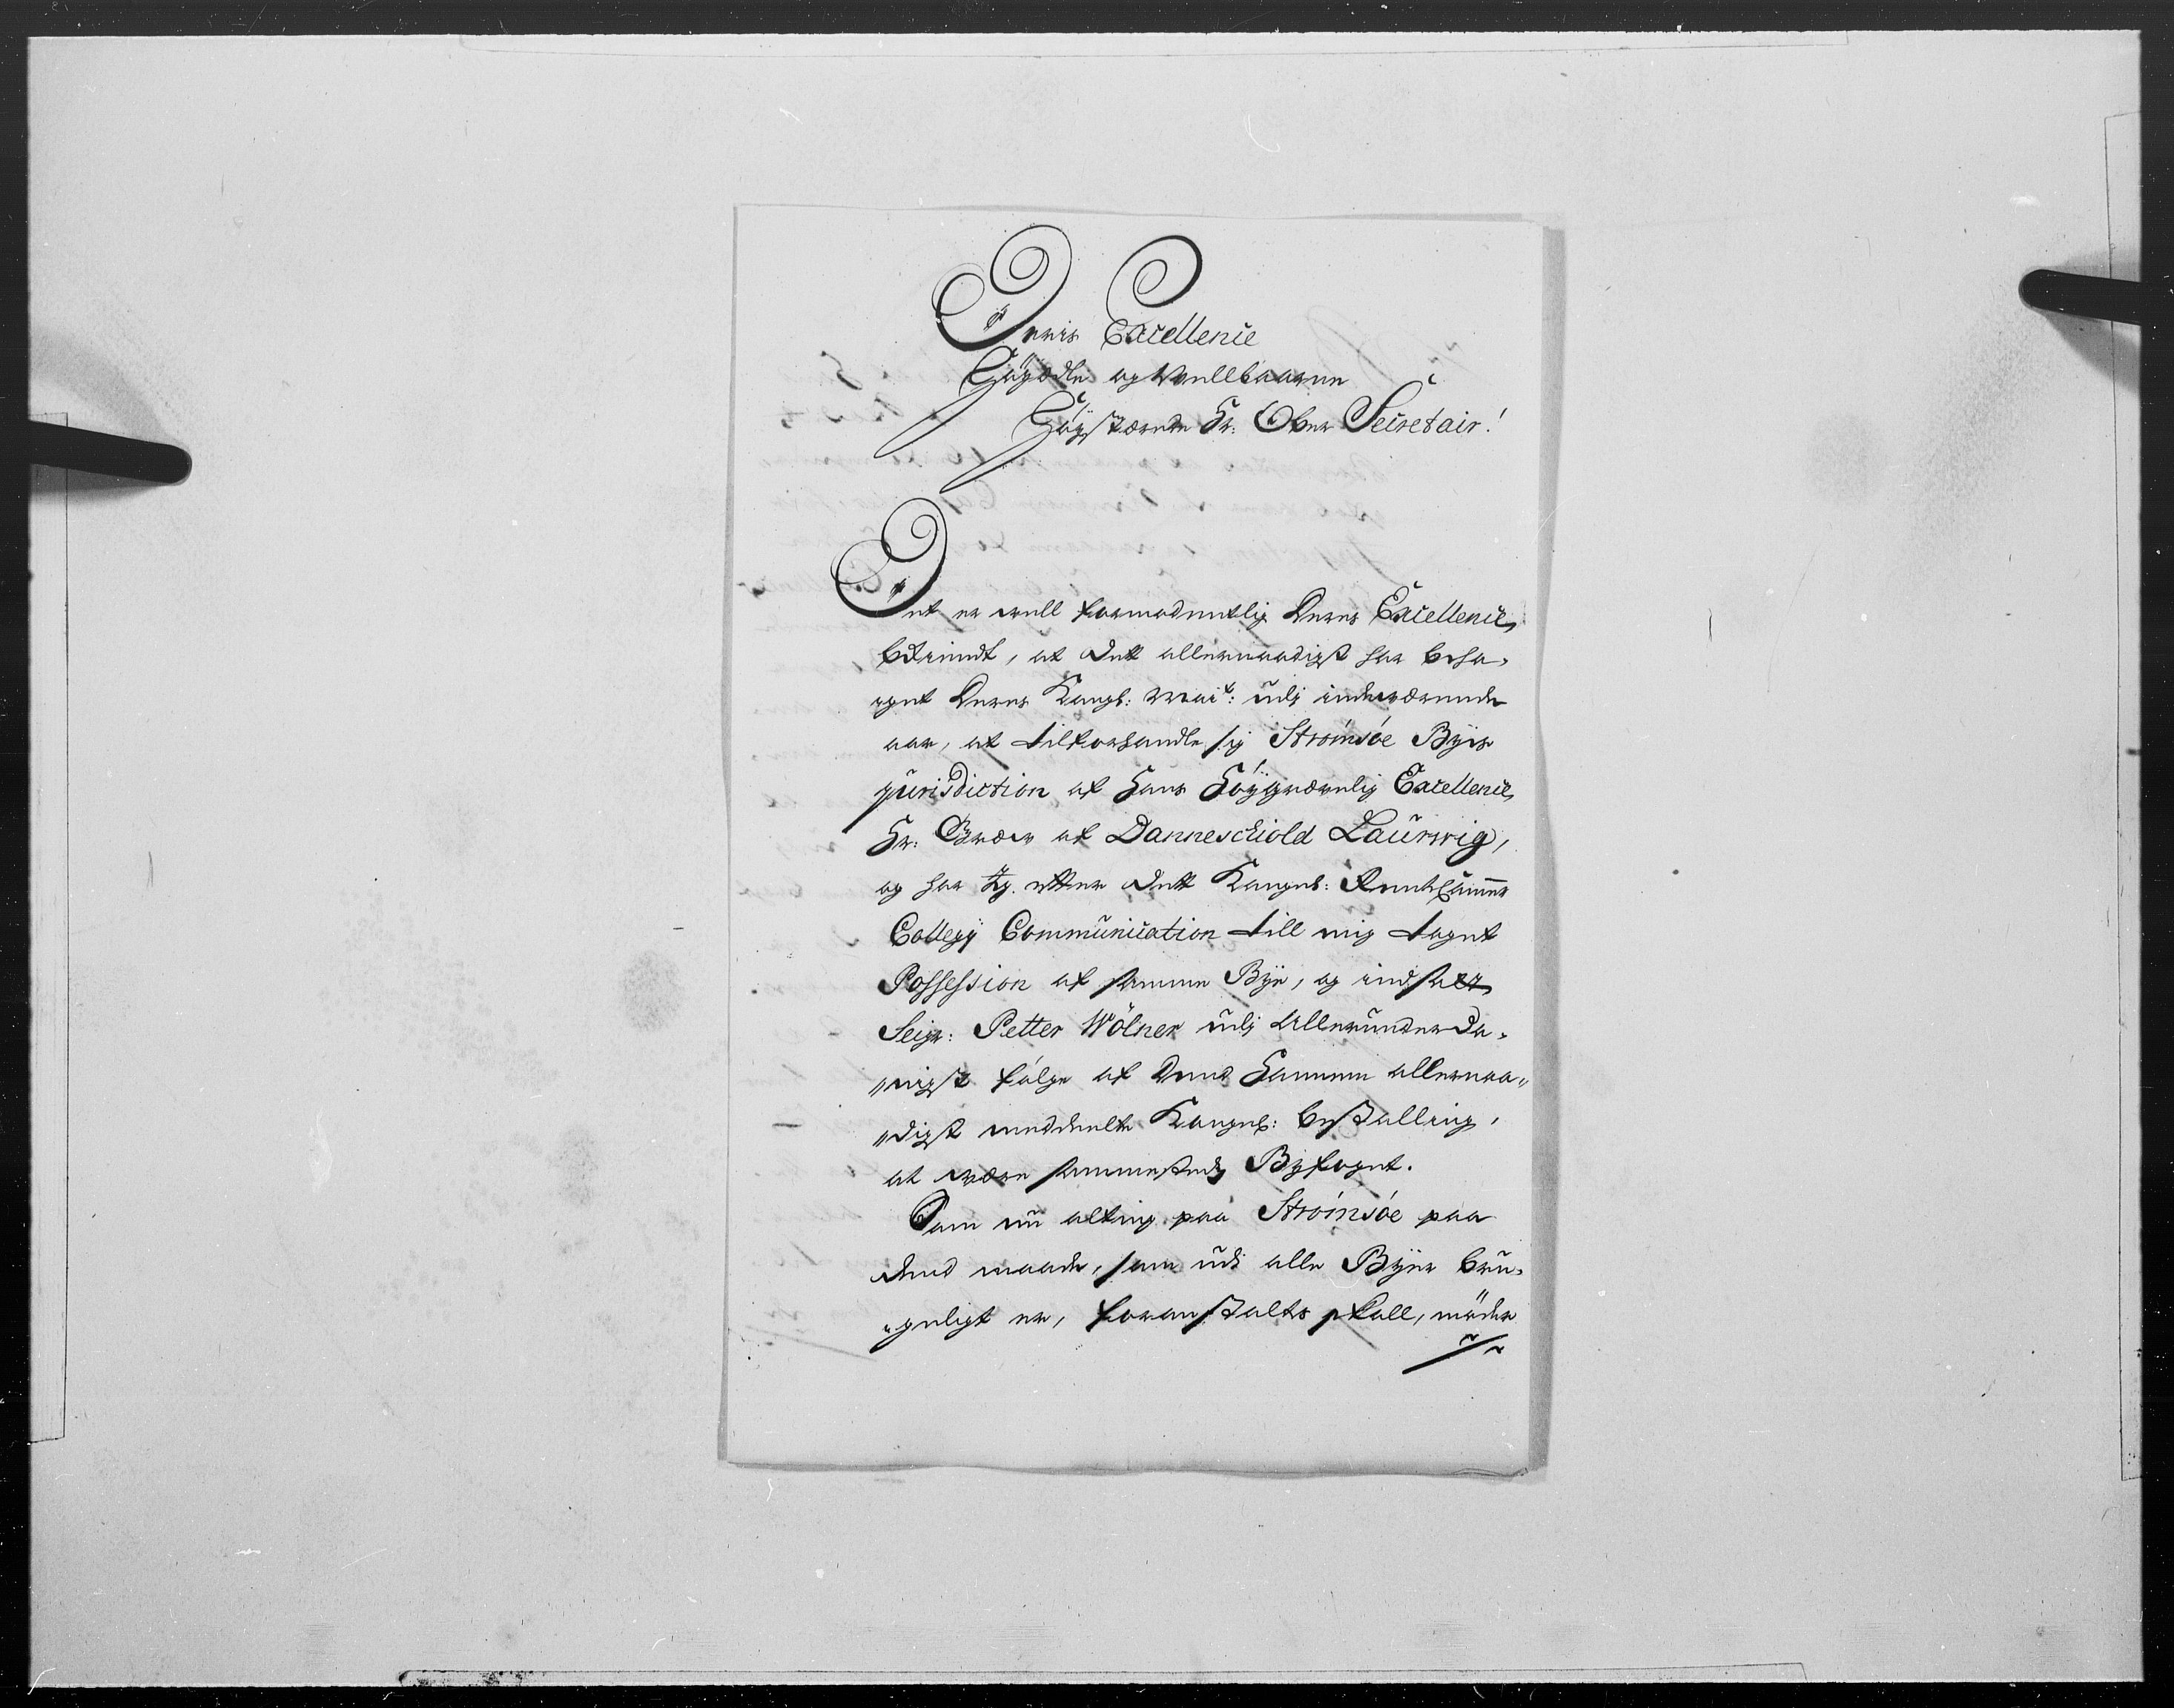 Deris Excellence
Høyædle og Welbaarne
Høystærede Hr: Ober Secretair!
Det er well formodentlig Deres Excellence
bekiendt, at Dett allernaadigst har beha-
-get Deres Kongl: May:t udj inderværende
aar, at tilforhandle sig Strömsöe Byis
jurisdiction af Hans Höygrævelig Excellence,
Hr: Græv af Danneschiold Laurwig,
og har Jeg efter Dett Kongel: Rentekammer
Collegij Communication till mig taget
Possession af samme Bye, og indsatt
Seigr: Petter Wölner udj Allerunderda-
"nigst fölge af Dend Hannem allernaa"
"digst meddeelte Kongel: bestalling,
at være sammesteds Byfoget.
Som nu alting paa Strömsöe paa
dend maade, som udi alle Byer bru-
"geligt er, foranstaltes skall, möder